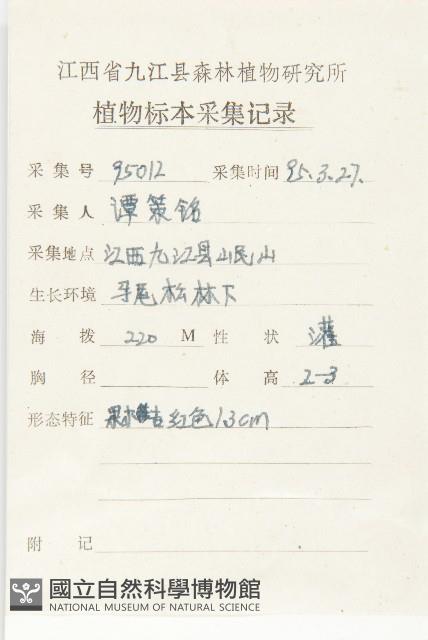 江西省九江县森林植物研究所
植物标本采集记录
采集号 95012 采集时间 95.3.27.
采集人 谭策铭
采集地点 江西九江县岷山
生长环境 马尾松林下
海拨 220 M 性状 灌
胸径 体高 2-3
形态特征 红色 1.3cm
附记
國立自然科學博物館
NATIONAL MUSEUM OF NATURAL SCIENCE